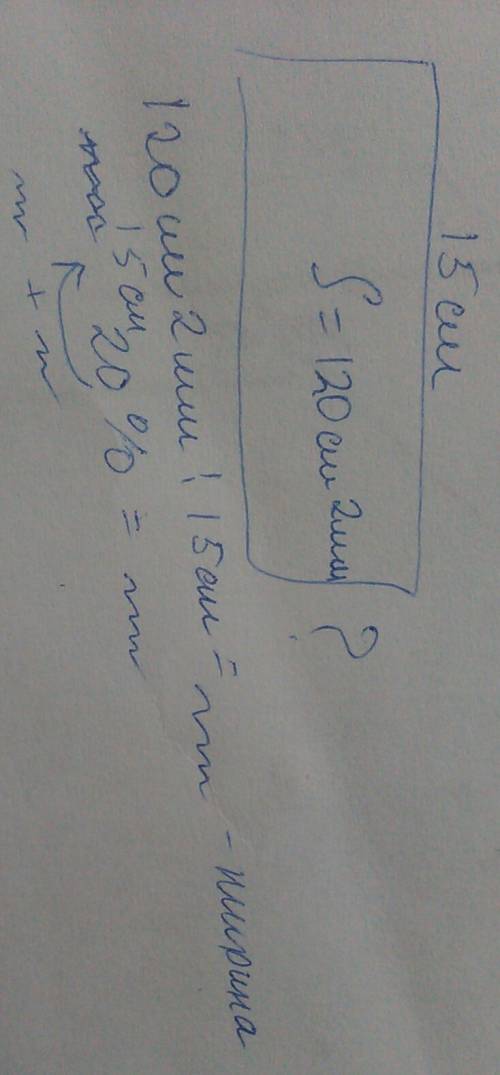 15 см
S = 120 см 2 мм ?
120 см 2 мм : 15 см = - ширина
15 см 20 % =
+